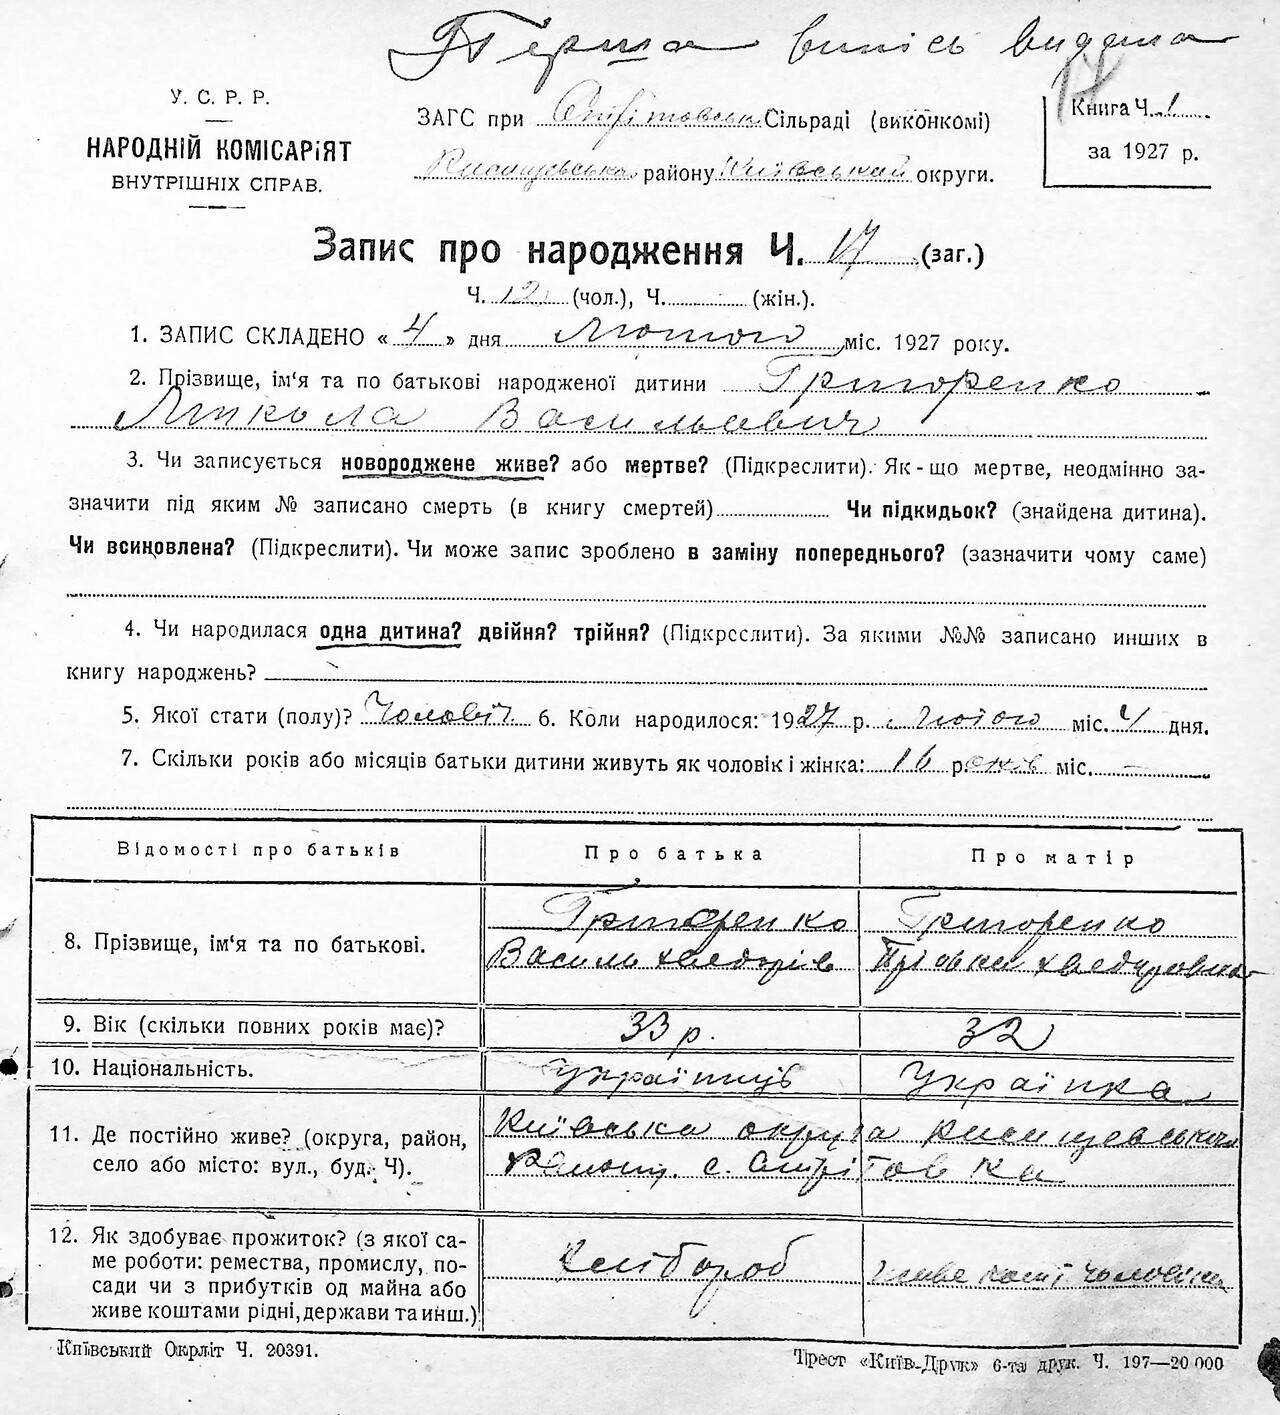 Перша випись видана
У. С. Р. Р.
НАРОДНІЙ КОМІСАРІЯТ
ВНУТРІШНІХ СПРАВ.
ЗАГС при Сільраді (виконкомі)
району Київській округи.
17
Книга Ч. 1
за 1927 р.
Запис про народження Ч. 17 (заг.)
Ч. 12 (чол.), Ч. (жін.).
1. ЗАПИС СКЛАДЕНО « 4 » дня Лютого міс. 1927 року.
2. Прізвище, ім‘я та по батькові народженої дитини Григоренко
Микола Васильович
3. Чи записується новороджене живе? або мертве? (Підкреслити). Як-що мертве, неодмінно за-
значити під яким № записано смерть (в книгу смертей) Чи підкидьок? (знайдена дитина).
Чи всиновлена? (Підкреслити). Чи може запис зроблено в заміну попереднього? (зазначити чому саме)
4. Чи народилася одна дитина? двійня? трійня? (Підкреслити). За якими №№ записано инших в
книгу народжень?
5. Якої стати (полу)? Чоловіч 6. Коли народилося: 1927 р. Лютого міс. 4 дня.
7. Скільки років або місяців батьки дитини живуть як чоловік і жінка: 16 років міс. —
Відомості про батьків
Про батька
Про матір
8. Прізвище, ім‘я та по батькові.
Григоренко
Василь
Григоренко
9. Вік (скільки повних років має)?
33 р.
32
10. Національність.
Українець
Українка
11. Де постійно живе? (округа, район,
село або місто: вул., буд. Ч).
Київська округа
району. с.
12. Як здобуває прожиток? (з якої са-
ме роботи: ремества, промислу, по-
сади чи з прибутків од майна або
живе коштами рідні, держави та инш.)
Хлібороб
живе чоловіка
Київський Окрліт Ч. 20391.
Трест «Київ-Друк» 6-та друк. Ч. 197—20 000